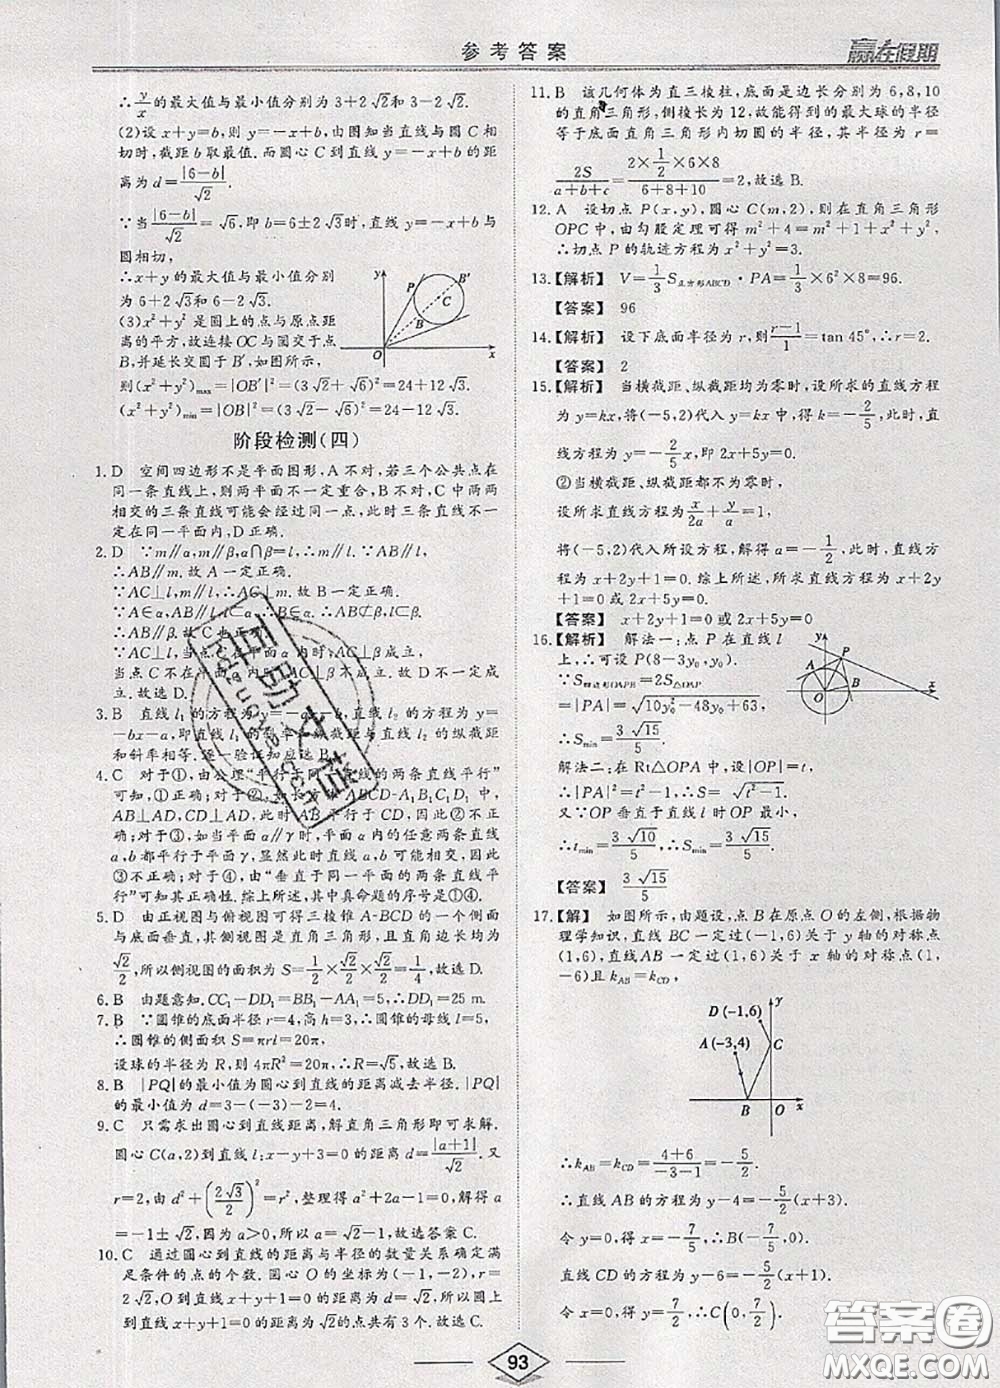 参考答案
赢在假期
∴y/x的最大值与最小值分别为3+2√3和3-2√3.
(2)设x+y=b,则y=-x+b,当直线y=-x+b与圆C相
切时,截距b取最值.而圆心C到直线y=-x+b的距
离为d=|6-b|/√2.
∵当|6-b|/√2=√6,即b=6±2√3时,直线y=-x+b与
圆相切,
∴x+y的最大值与最小值分别
为6+2√3和6-2√3.
(3)x²+y²是圆上的点与原点距
离的平方,故连接OC与圆交于点
B,并延长交圆于B′,如图所示,
则(x²+y²)max=|OB′|²=(3√2+√6)²=24+12√3,
(x²+y²)min=|OB|²=(3√2-√6)²=24-12√3.
y
P
B′
C
B
O
x
阶段检测(四)
1.D 空间四边形不是平面图形,A不对,若三个公共点在
同一条直线上,则两平面不一定重合,B不对,C中两两
相交的三条直线可能会经过同一点,此时三条直线不一
定在同一平面内,D正确.
2.D ∵m∥α,m∥β,α∩β=l,∴m∥l.
∴AB∥m.故A一定正确.
∵AC⊥l,m∥l,∴AC⊥m.故B一定正确.
∵A∈α,AB∥l,l⊂α,∴B∈α.∴AB⊄β,l⊂β.
∴AB∥β.故C也正确.
∵AC⊥l,当点C在平面α内时,AC⊥β成立,
当点C不在平面α内时,AC⊥β不成立.故D不一定成
立.故选D.
3.B 直线l₁的方程为y=-ax-b,直线l₂的方程为y=
-bx-a,即直线l₁的斜率与直线l₂的纵截距
和斜率相等.逐一验证知应选B.
4.C 对于①,由公理“平行于同一直线的两条直线平行”
可知,①正确;对于②,如长方体ABCD-A₁B₁C₁D₁中,
AB⊥AD,CD⊥AD,此时AB∥CD,因此②不正
确;对于③,如当平面α∥γ时,平面α内的任意两条直线
a,b都平行于平面γ,显然此时直线a,b可能相交,因
此③不正确;对于④,由“垂直于同一平面的两条直线平
行”可知其正确性.综上所述,其中真命题的序号是①④.
5.D 由正视图与俯视图可得三棱锥A-BCD的一个侧面
与底面垂直,其侧视图是直角三角形,且直角边长均为
√2/2,所以侧视图的面积为S=1/2×√2/2×√2/2=1/4,故选D.
6.B 由题意知.CC₁-DD₁=BB₁-AA₁=5,∴DD₁=25 m.
7.B ∵圆锥的底面半径r=4,高h=3,∴圆锥的母线l=5,
∴圆锥的侧面积S=πrl=20π,
设球的半径为R,则4πR²=20π,∴R=√5,故选B.
8.B |PQ|的最小值为圆心到直线的距离减去半径.|PQ|
的最小值为d=3-(-3)-2=4.
9.C 只需求出圆心到直线距离,解直角三角形即可求解.
圆心C(a,2)到直线l:x-y+3=0的距离d=|a+1|/√2.又
r=2,由d²+(2√3/2)²=r²,整理得a²+2a-1=0,解得a
=-1±√2,因为a>0,所以a=-1+√2,故选答案C.
10.C 通过圆心到直线的距离与半径的数量关系确定满
足条件的点的个数.圆心O的坐标为(-1,-2),r=
2√2,O到直线x+y+1=0的距离d=√2,所以圆上到
直线x+y+1=0的距离为√2的点共有3个.故选C.
11.B 该几何体为直三棱柱,底面是边长分别为6,8,10
的直角三角形,侧棱长为12,故能得到的最大球的半径
等于底面直角三角形内切圆的半径,其半径为r=
2S/(a+b+c)=(2×1/2×6×8)/(6+8+10)=2,故选B.
12.A 设切点P(x,y),圆心C(m,2),则在直角三角形
OPC中,由勾股定理可得m²+4=m²+1+x²+y²,
∴切点P的轨迹方程为x²+y²=3.
13.【解析】 V=1/3S正方形ABCD·PA=1/3×6²×8=96.
【答案】 96
14.【解析】 设下底面半径为r,则(r-1)/1=tan 45°,∴r=2.
【答案】 2
15.【解析】 当横截距、纵截距均为零时,设所求的直线方程
为y=kx,将(-5,2)代入y=kx中,得k=-2/5,此时,直
线方程为y=-2/5x,即2x+5y=0.
②当横截距、纵截距都不为零时,
设所求直线方程为x/2a+y/a=1,
将(-5,2)代入所设方程,解得a=-1/2,此时,直线方程
为x+2y+1=0.综上所述,所求直线方程为x+2y
+1=0或2x+5y=0.
【答案】 x+2y+1=0或2x+5y=0
16.【解析】 解法一:点P在直线l
上,∴可设P(8-3y₀,y₀).
∴S四边形OAPB=2S△OPA
=|PA|=√(10y₀²-48y₀+63),
∴Smin=3√15/5.
解法二:在Rt△OPA中,设|OP|=t,
∴|PA|²=t²-1,∴S=√(t²-1).
又∵OP垂直于直线l时,|OP|最小,
∴tmin=3√10/5,∴Smin=3√15/5.
【答案】 3√15/5
y
P
A
O
B
x
17.【解】 如图所示,由题设,点B在原点O的左侧,根据物
理学知识,直线BC一定过(-1,6)关于y轴的对称点
(1,6),直线AB一定过(1,6)关于x轴的对称点(1,
-6)且kAB=kCD,
D(-1,6)
A(-3,4)
y
C
B
x
∴kAB=kCD=(4+6)/(-3-1)=-5/2.
∴直线AB的方程为y-4=-5/2(x+3).
令y=0,得x=-7/5,∴B(-7/5,0).
直线CD的方程为y-6=-5/2(x+1).
令x=0,得y=7/2,∴C(0,7/2).
93
答案圈
MXQE.COM